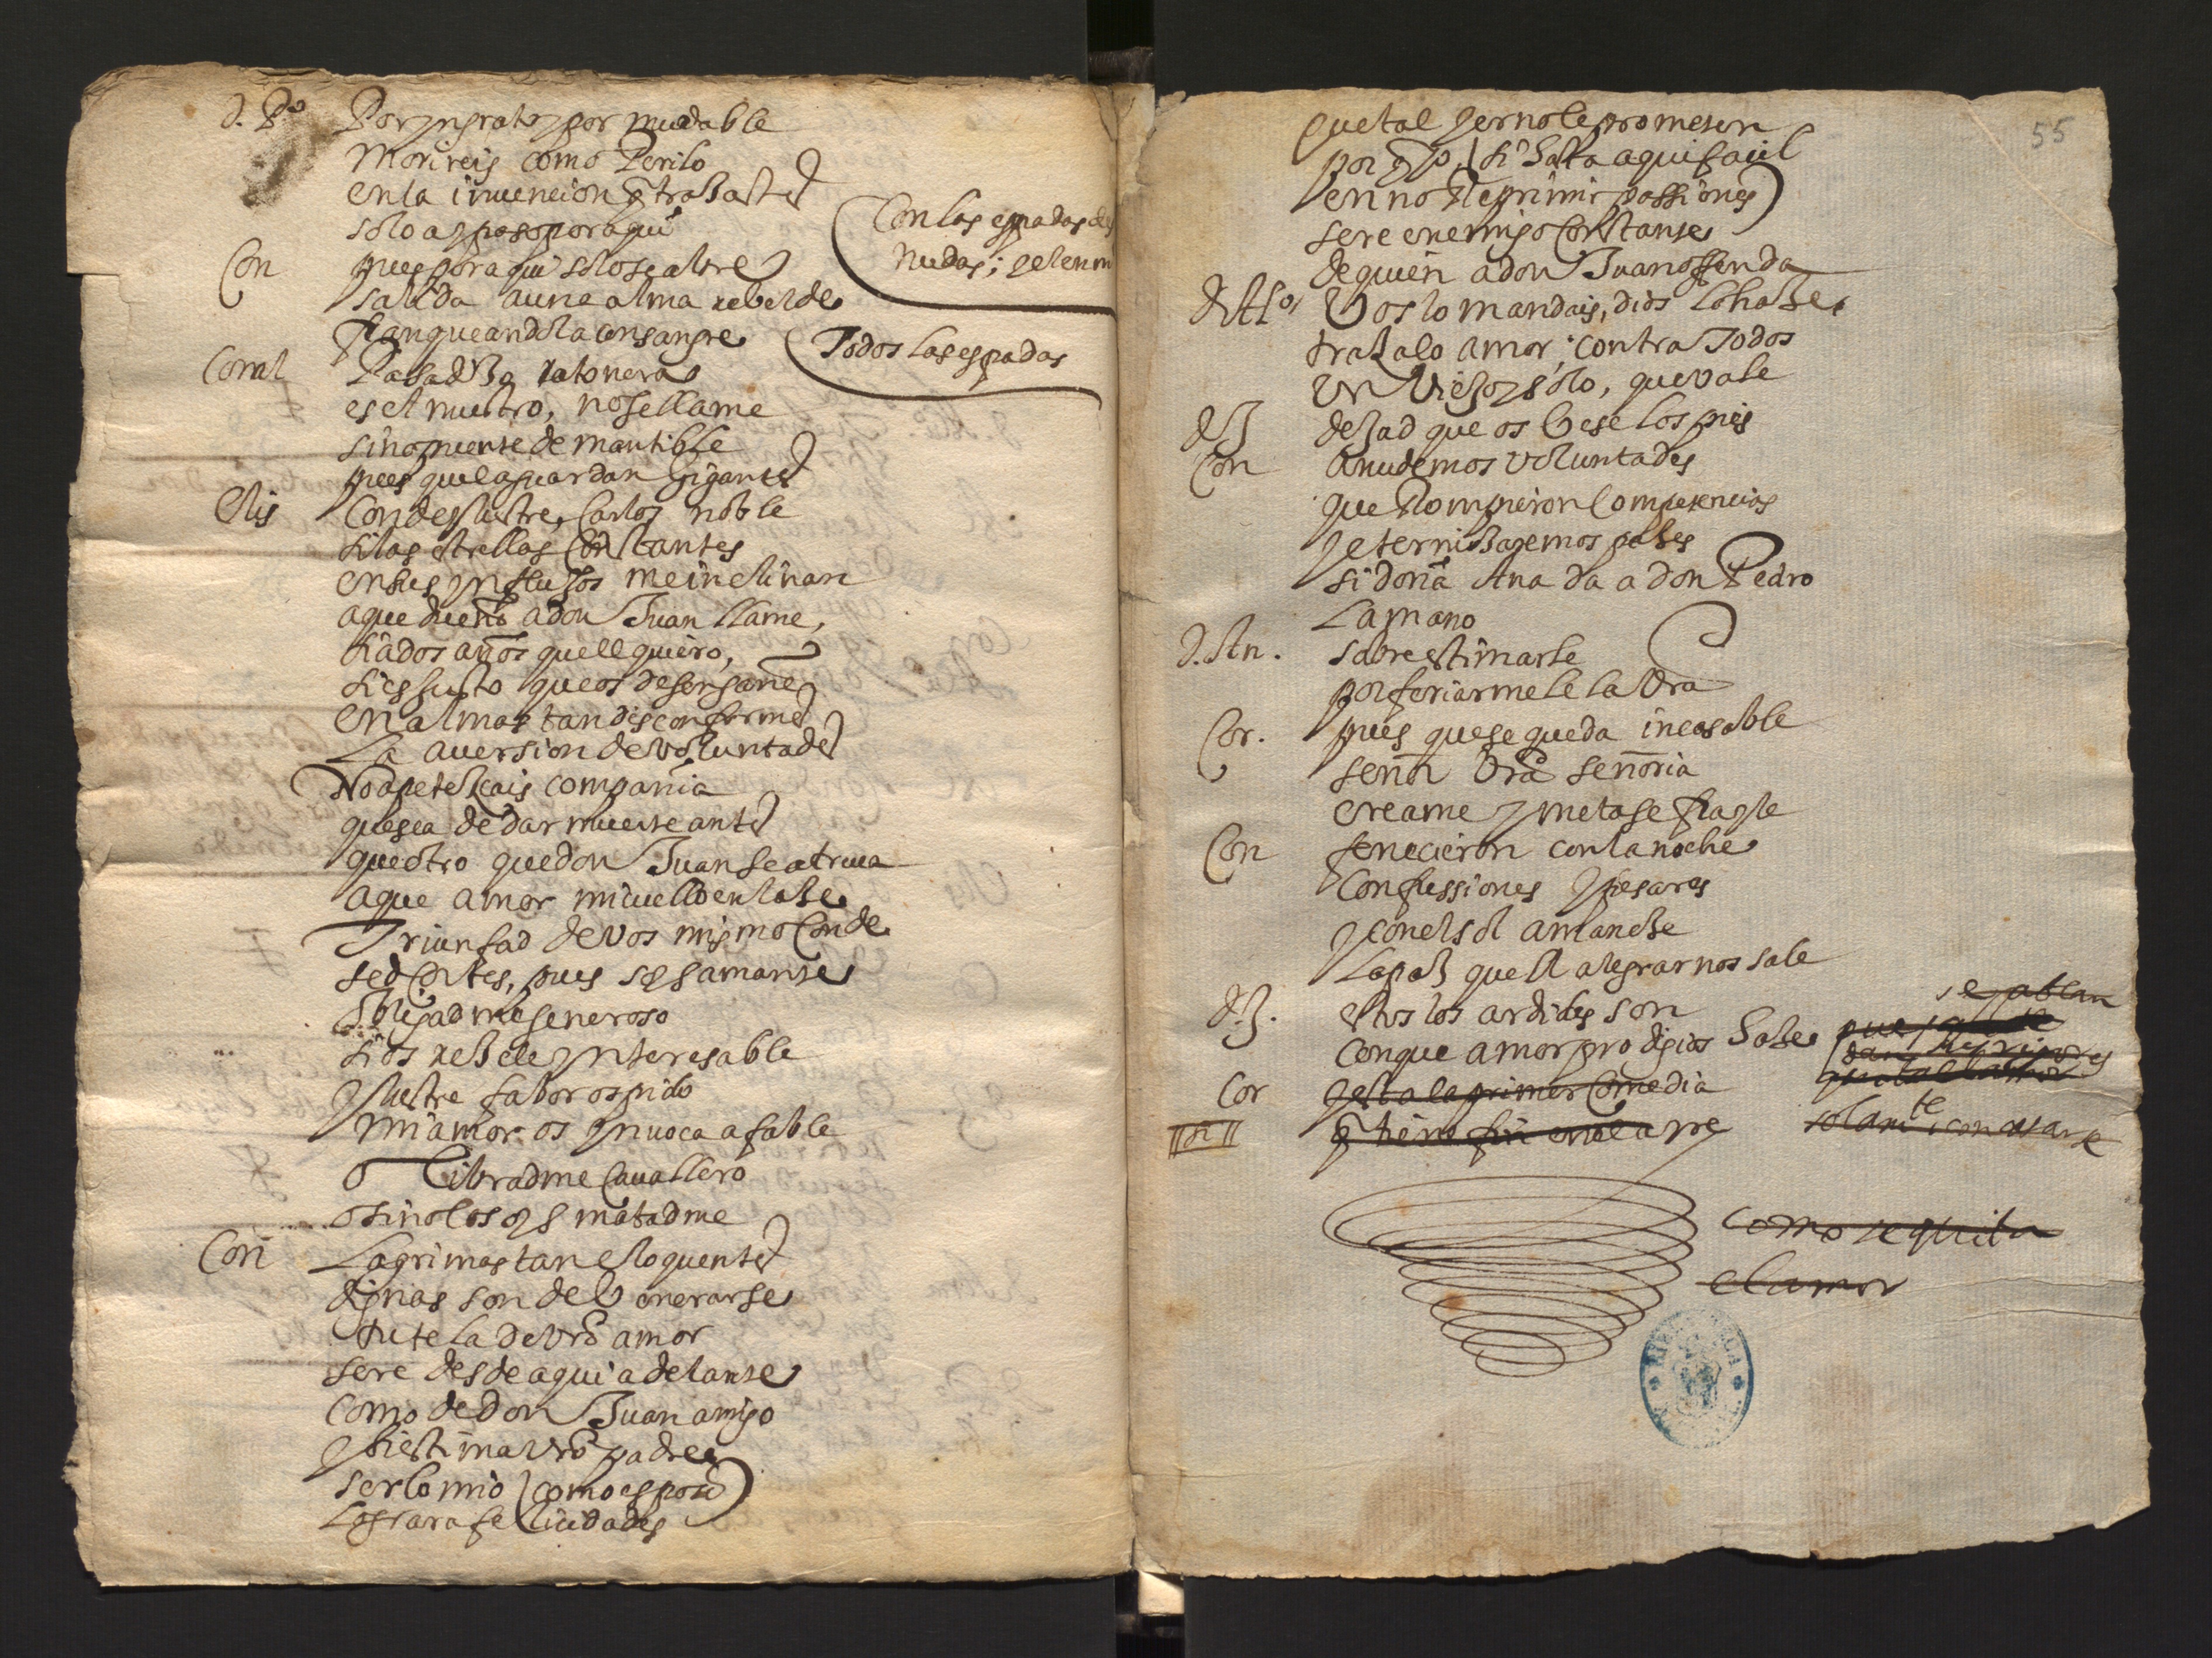 d. Po Por yngrato y por mudable
morireis como Perilo
en la inuencion q̃ trazastes
solo ay paso por aqui
Con las espadas des
nudas; y el en m
Con pues por aqui solo se abre
salida a une alma rebelde
franqueandola con sangre
Todos las espadas
Coral Pasadizo ratonera
es el nuestro, no se llame
sino puente de mantible
pues que la guardan Gigantes
Elis Conde ylustre, Carlos noble
si las estrellas constantes
en sus ynfluxos me inclinan
a que dueño a don Juan llame,
si a dos años que le quiero,
si es justo que os desengañe
en almas tan disconformes
La auersion de voluntades
No apetezcais compañia
que sea de dar muerte antes
que otro que don Juan se atreua
a que amor mi cuello enlaze
Triunfad de vos mismo Conde
sed Cortes, pues soys amante
obligadme generoso
si os rezele ynteresable
ylustre fabor os pido
mi amor os ynuoca afable
o Libradme Cauallero
o si no lo soys matadme
Con Lagrimas tan eloquentes
dignas son de venerarse
tutela de vro amor
sere desde aqui adelante
como de don Juan amigo
y si estima vro padre
serlo mio como esposo
Lograra felicidades
55
que tal yerno le prometen
por q̃ yo, si hasta aqui facil
en no Reprimir passiones
sere enemigo Constante
de quien a don Juan offenda
d. Alo Vos lo mandais, dios lo haze,
trazalo amor; contra Todos
un Viejo y solo, que vale
d J dejad que os bese los pies
Con Anudemos voluntades
que Rompieron Competencias
y eternizaremos pazes
si doña Ana da a don Pedro
La mano
D. An. sabre estimarle
por feriarmele la Vra
Cor. pues que se queda incasable
señor Vra señoria
creame y metase frayle
Con fenecieron con la noche
Confussiones y pesares
y con el sol amaneze
La paz que A alegrarnos sale
d. J. estos los ardides son
con que amor prodigios haze
se
Cor y esta la primer Comedia
q̃ tiene fin en el ayre
solamte, con
como se quita
el amor